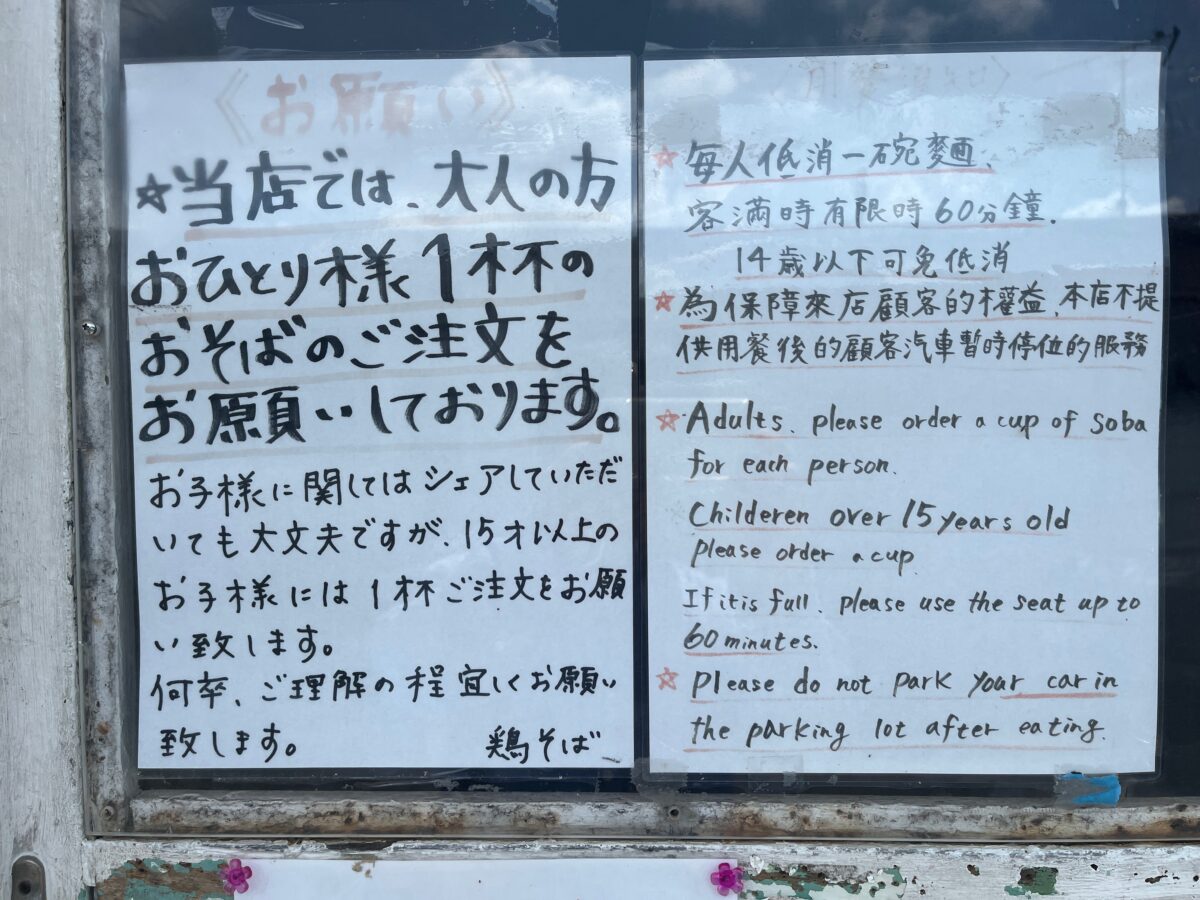 《お願い》
☆当店では、大人の方
おひとり様1杯の
おそばのご注文を
お願いしております。
お子様に関してはシェアしていただ
いても大丈夫ですが、15才以上の
お子様には1杯ご注文をお願
い致します。
何卒、ご理解の程宜しくお願い
致します。
鶏そば
☆每人低消一碗麵、
客滿時有限時60分鐘.
14歲以下可免低消
☆為保障來店顧客的權益、本店不提
供用餐後的顧客汽車暫時停位的服務
☆Adults、please order a cup of soba
for each person.
Childeren over 15years old
please order a cup.
If it is full、please use the seat up to
60minutes.
☆Please do not park your car in
the parking lot after eating.